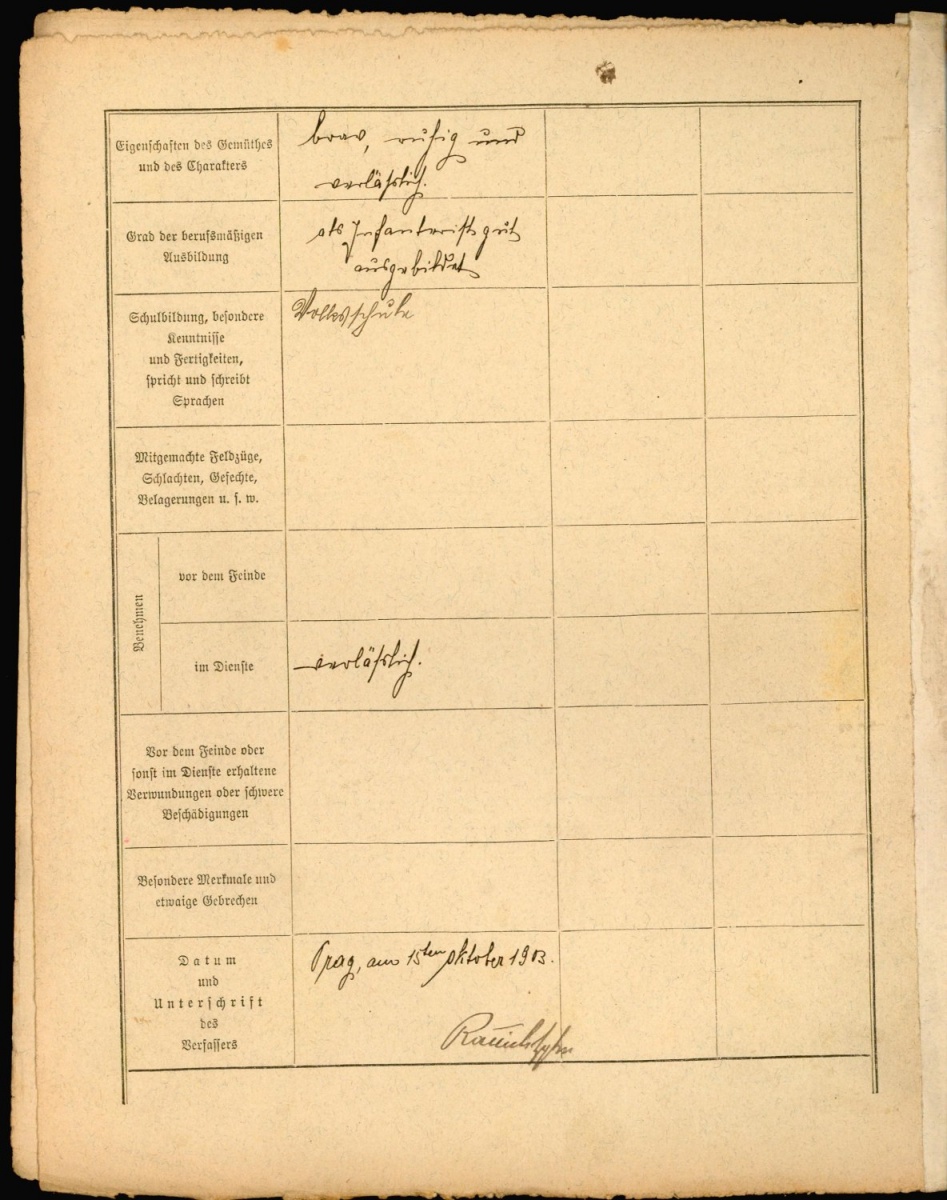 Eigenschaften des Gemüthes
und des Charakters
brav, ruhig und
verläßlich.
Grad der berufsmäßigen
Ausbildung
als Infanterist gut
ausgebildet
Schulbildung, besondere
Kenntnisse
und Fertigkeiten,
spricht und schreibt
Sprachen
Volksschule
Mitgemachte Feldzüge,
Schlachten, Gefechte,
Belagerungen u. s. w.
Benehmen
vor dem Feinde
im Dienste
verläßlich.
Vor dem Feinde oder
sonst im Dienste erhaltene
Verwundungen oder schwere
Beschädigungen
Besondere Merkmale und
etwaige Gebrechen
Datum
und
Unterschrift
des
Verfassers
Prag, am 15ten Oktober 1903.